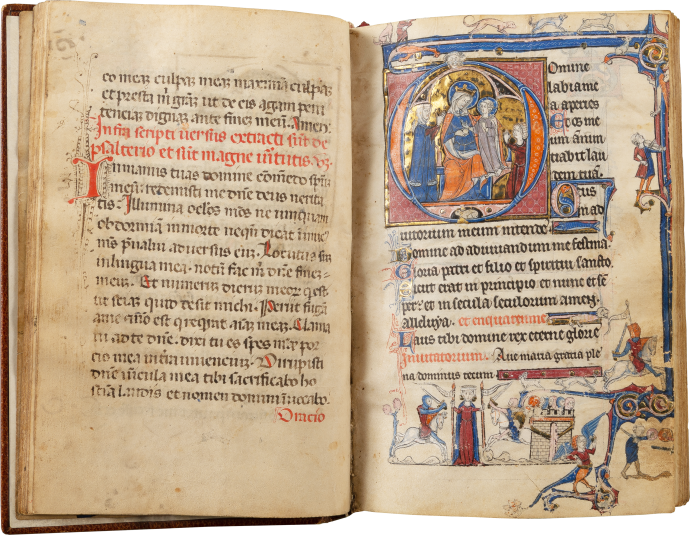 eo mea culpa mea maxima culpa
et presta m gram ut de eis agam peni
tenciaz dignaz ante finez meuz. Amen
Infra scripti uersus extracti sut de
psalterio et sut magne uirtutis
In manus tuas domine cometo spm
meu redemisti me dne deus uerita
tis Illumina oclos mos ne unquam
obdormiam in morte nequn dicat inimic
ms preualui aduersus eu Locutus su
in lingua mea notu fac m dne finez
meuz Et numerum dierum meor q est
ut scia quid desit michi Periit fuga
a me et no est q requirat aiaz meaz Clama
ui ad te dne dixi tu es spes mea por
cio mea in tra uiuencium Dirupisti
dne uicula mea tibi sacrificabo ho
stia laudis et nomen domini inuocabo
Oracio
Domine
labia me
a aperies
Et os me
um annun
tiabit lau
dem tua
Deus
in ad
iutorium meum intende
Domine ad adiuuandum me festina
Gloria patri et filio et spiritui sancto
Sicut erat in principio et nunc et sem
per et in secula seculorum amen
alleluya
Laus tibi domine rex eterne glorie
Inuitatorium Aue maria gracia ple
na dominus tecum